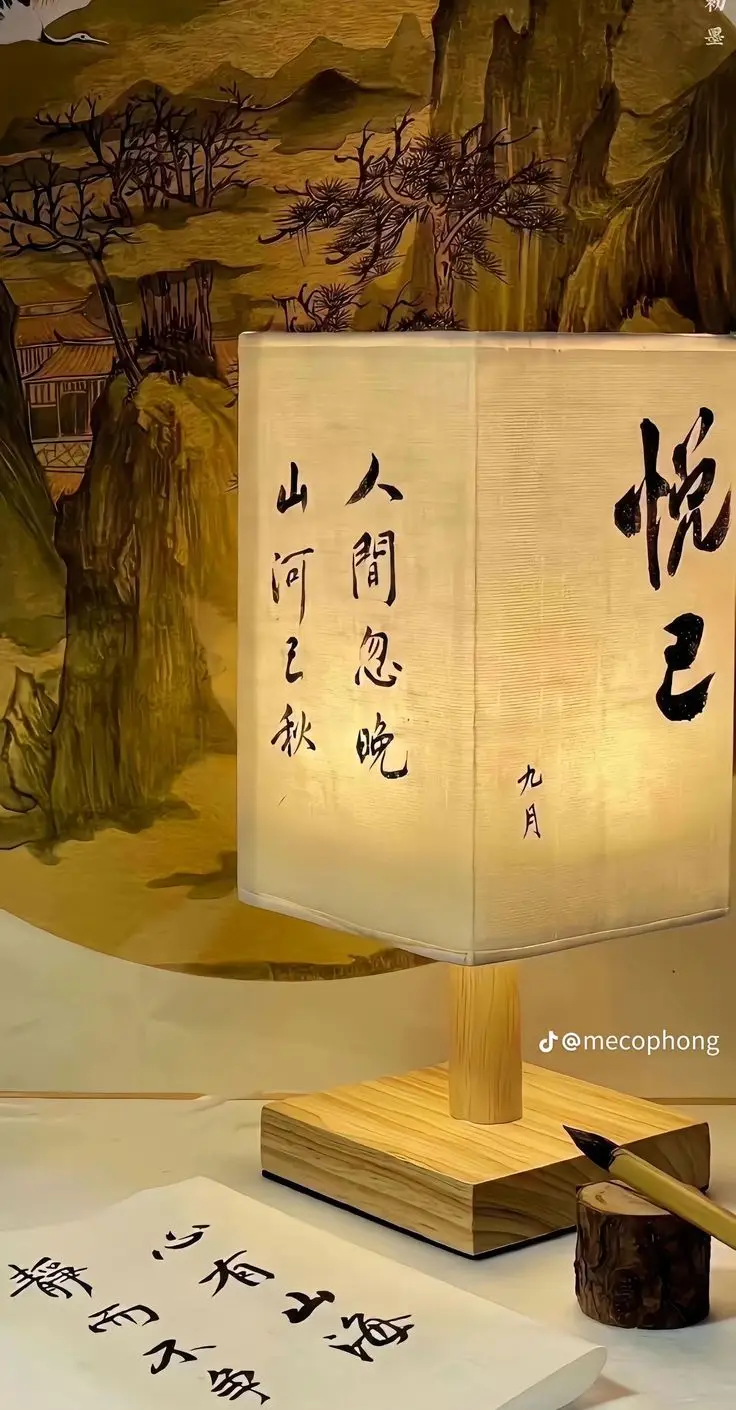 初墨
悦己
九月
人間忽晚
山河已秋
@mecophong
心有山海
静而不争